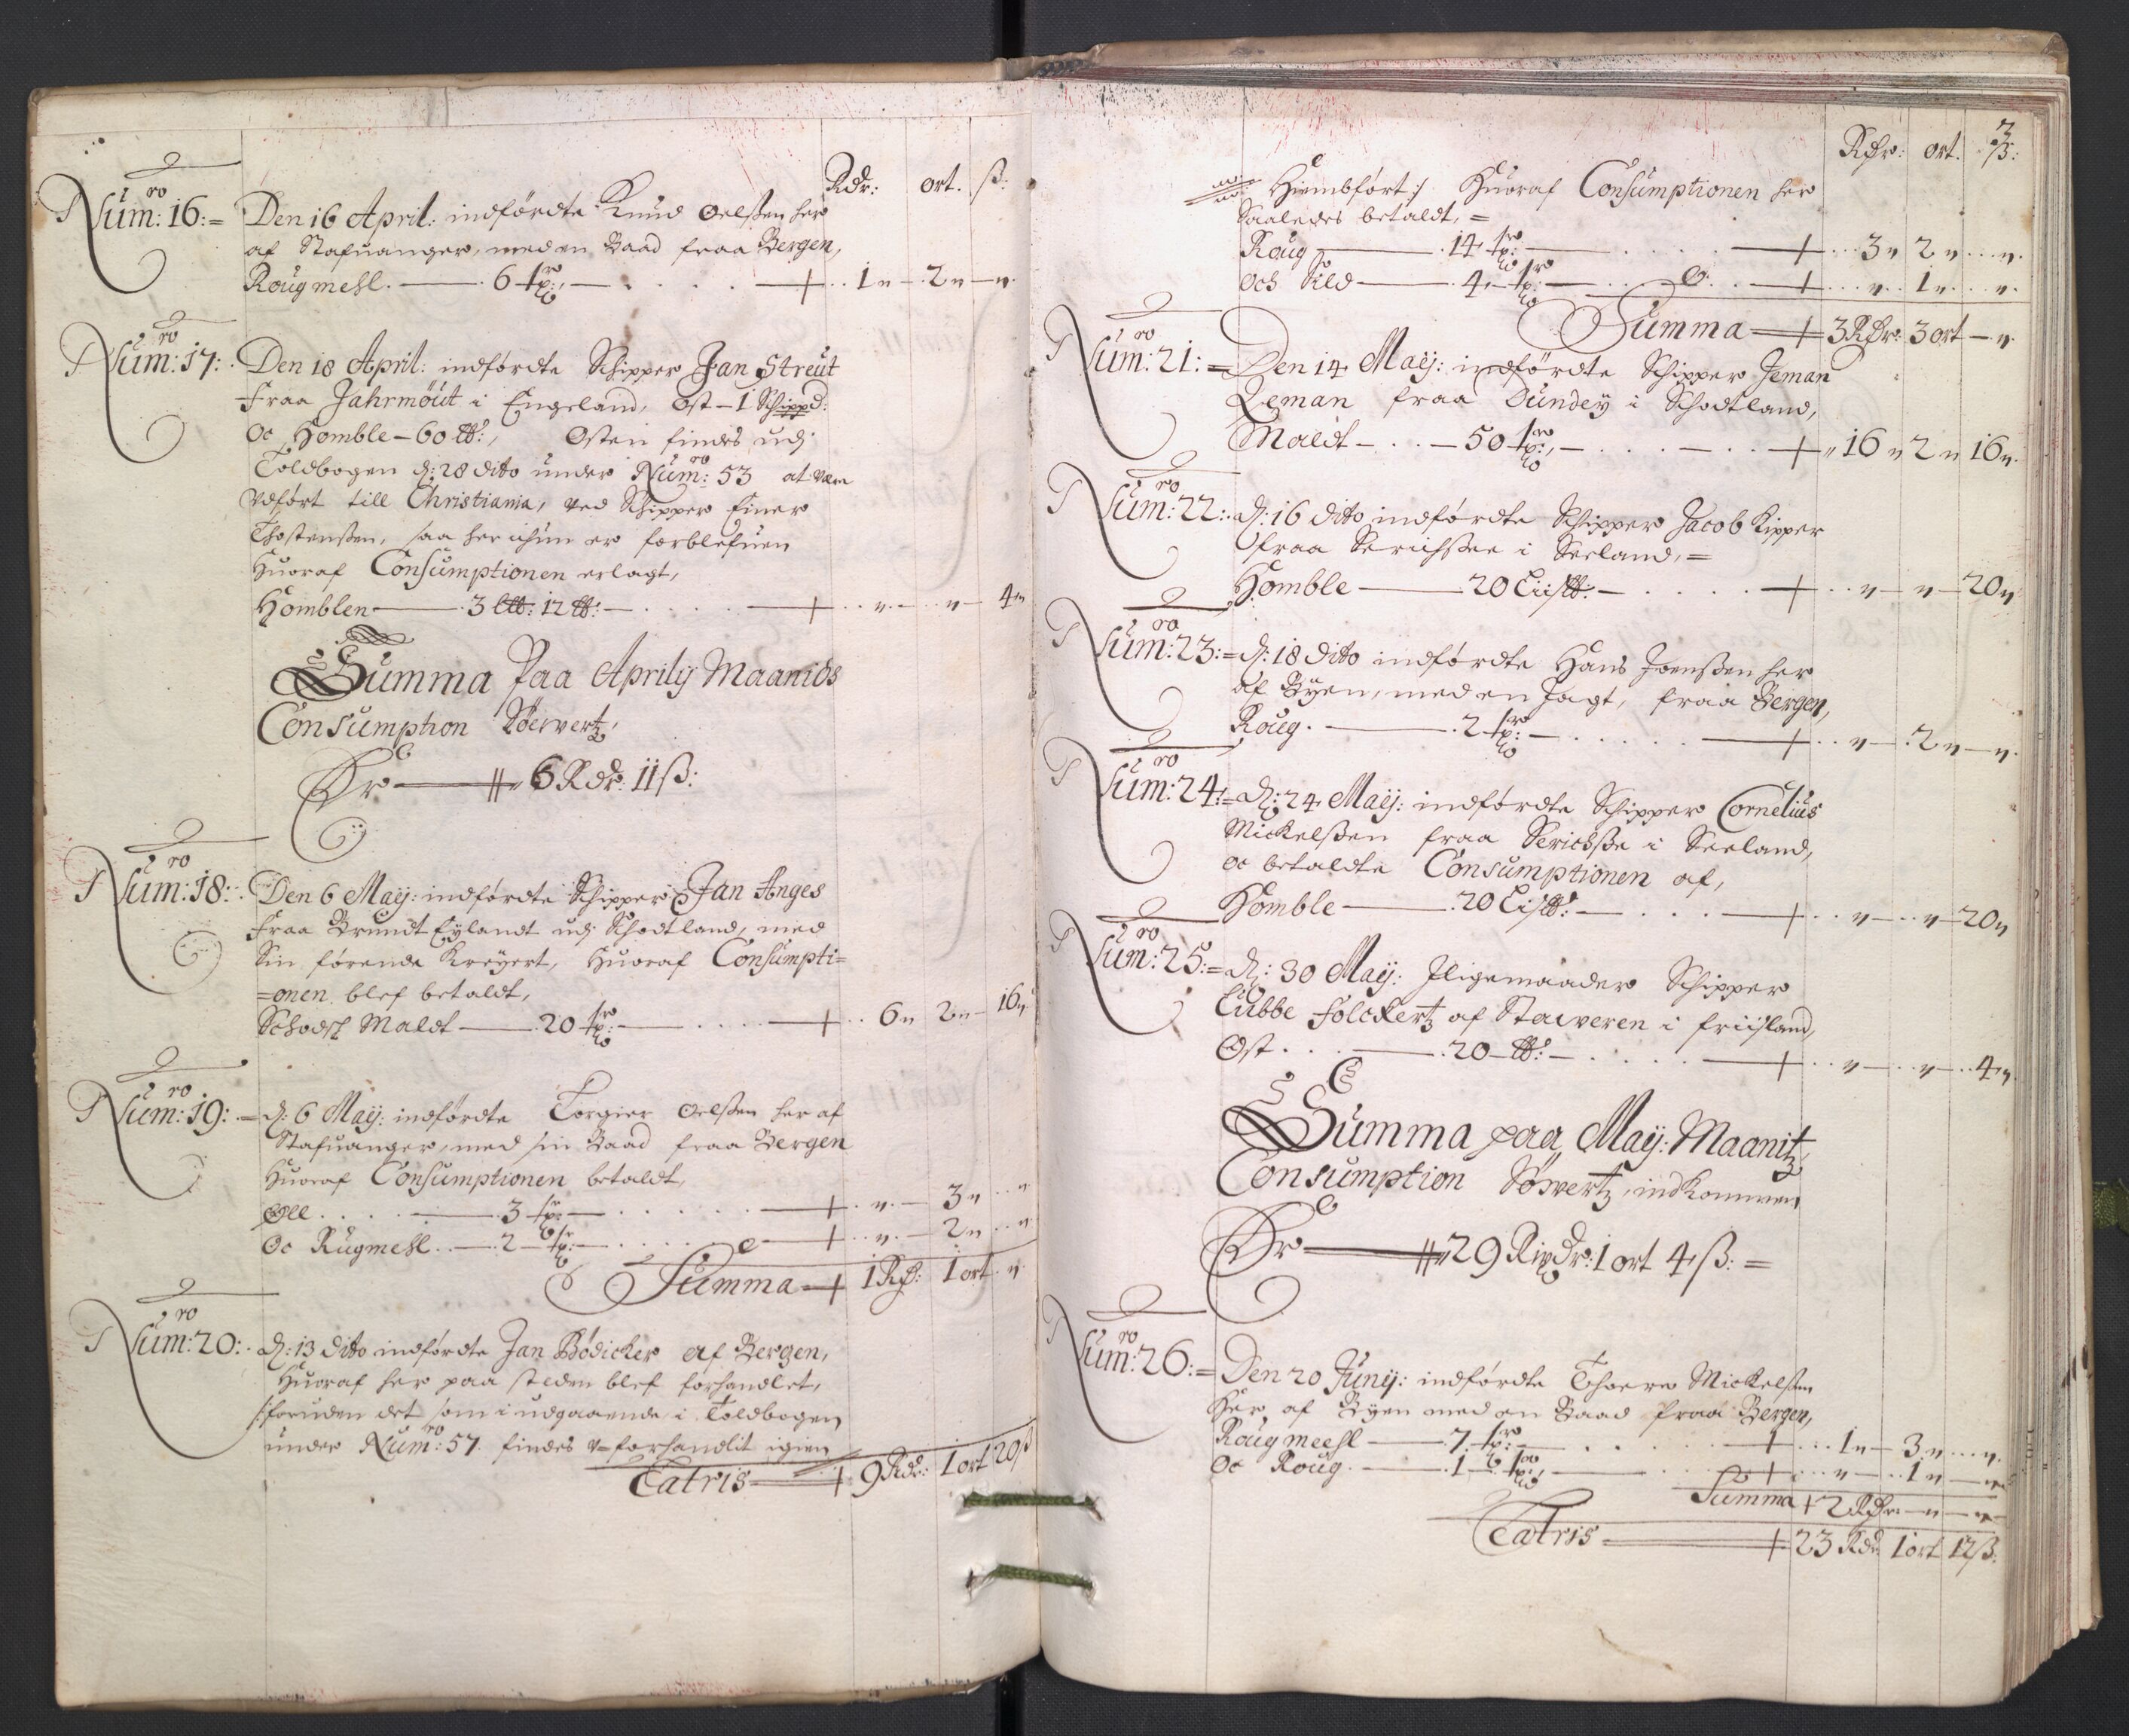 Rdr: ort. ß:
Num:ro 16:= Den 16 April: indførdte Knud Oelßen her
af Stafuanger, med en Baad fraa Bergen,
Rougmehl. — 6 tr: — + 1 „ 2 „ — „
Num:ro 17: Den 18 April: indførdte Schipper Jan Streut
Fraa Jahrmöut i Engeland, Ost — 1 Schippd:
Oc Homble — 60 ℔:, Osten findes udj
Toldbogen d: 28 dito under Num:ro 53 at være
Vdført till Christiania, ved Schipper Einer
Thostenßen, saa her ichun er forblefuen
Huoraf Consumptionen erlagt,
Homblen — 3 L℔: 12 ℔: — + „ — „ — 4 „
Summa Paa Aprilij Maanids
Consumption Söewertz,
Er — 6 Rdr: 11 ß:
Num:ro 18: Den 6 Maij: indførdte Schipper Jan Anges
Fraa Brundt Eylandt udj Schodtland, med
Sin førende Kreyert, Huoraf Consumpti=
=onen blef betaldt,
Schodsk Maldt — 20 tr: — + 6 „ 2 „ 16 „
Num:ro 19: = d: 6 Maij: indførdte Torgier Oelßen her af
Stafuanger, med sin Baad fraa Bergen
Huoraf Consumptionen betaldt,
Øll — 3 tr: — + „ — 3 „ „
Oc Rugmehl. — 2 tr: — + „ — 2 „ „
Summa + 1 Rd: 1 ort „
Num:ro 20: d: 13 dito indførdte Jan Bödicker af Bergen,
Huoraf her paa steden blef forhandlet,
/: foruden det som i udgaaende i Toldbogen
under Num:ro 57 findes u-forhandlit igien
Latris — + 9 Rdr: 1 ort 20 ß
3
Rdr: ort. ß:
Hiembført :/ Huoraf Consumptionen her
Saaledes betaldt, =
Roug — 14 tr: — + 3 „ 2 „ „
Och Sild — 4 tr: — + „ 1 „ „
Summa + 3 Rdr: 3 ort — „
Num:ro 21: = Den 14 Maij: indførdte Schipper Jeman
Leman fraa Dundey i Schodtland,
Maldt — 50 tr: — + 16 „ 2 „ 16 „
Num:ro 22: d: 16 dito indførdte Schipper Jacob Kipper
fraa Serichsee i Seeland, =
Homble — 20 Liis℔: — + „ — „ — 20 „
Num:ro 23: = d: 18 dito indførdte Hans Joenßen her
af Byen, med en Jagt, fraa Bergen,
Roug. — 2 tr: — + „ — 2 „ — „
Num:ro 24: = d: 24 Maij: indførdte Schipper Cornelius
Mickelßen fraa Serichße i Seeland,
oc betaldte Consumptionen af,
Homble — 20 Lis℔: — + „ — „ 20 „
Num:ro 25: = d: 30 Maij: Iligemaader Schipper
Lubbe Folckertz af Staweren i friisland,
Ost — 20 ℔: — + „ — „ 4 „
Summa paa Maij: Maanitz
Consumption Söwertz, indkommen
Er — 29 Rixdr: 1 ort 4 ß: =
Num:ro 26: = Den 20 Junij: indførdte Thoere Mickelßen
her af Byen med en Baad fraa Bergen,
Rougmeehl — 7 tr: — + 1 „ 3 „ „
Oc Roug. — 1 tr: — + „ — 1 „ „
Summa + 2 Rdr: — „ — „
Latris — + 23 Rdr 1 ort 12 ß: